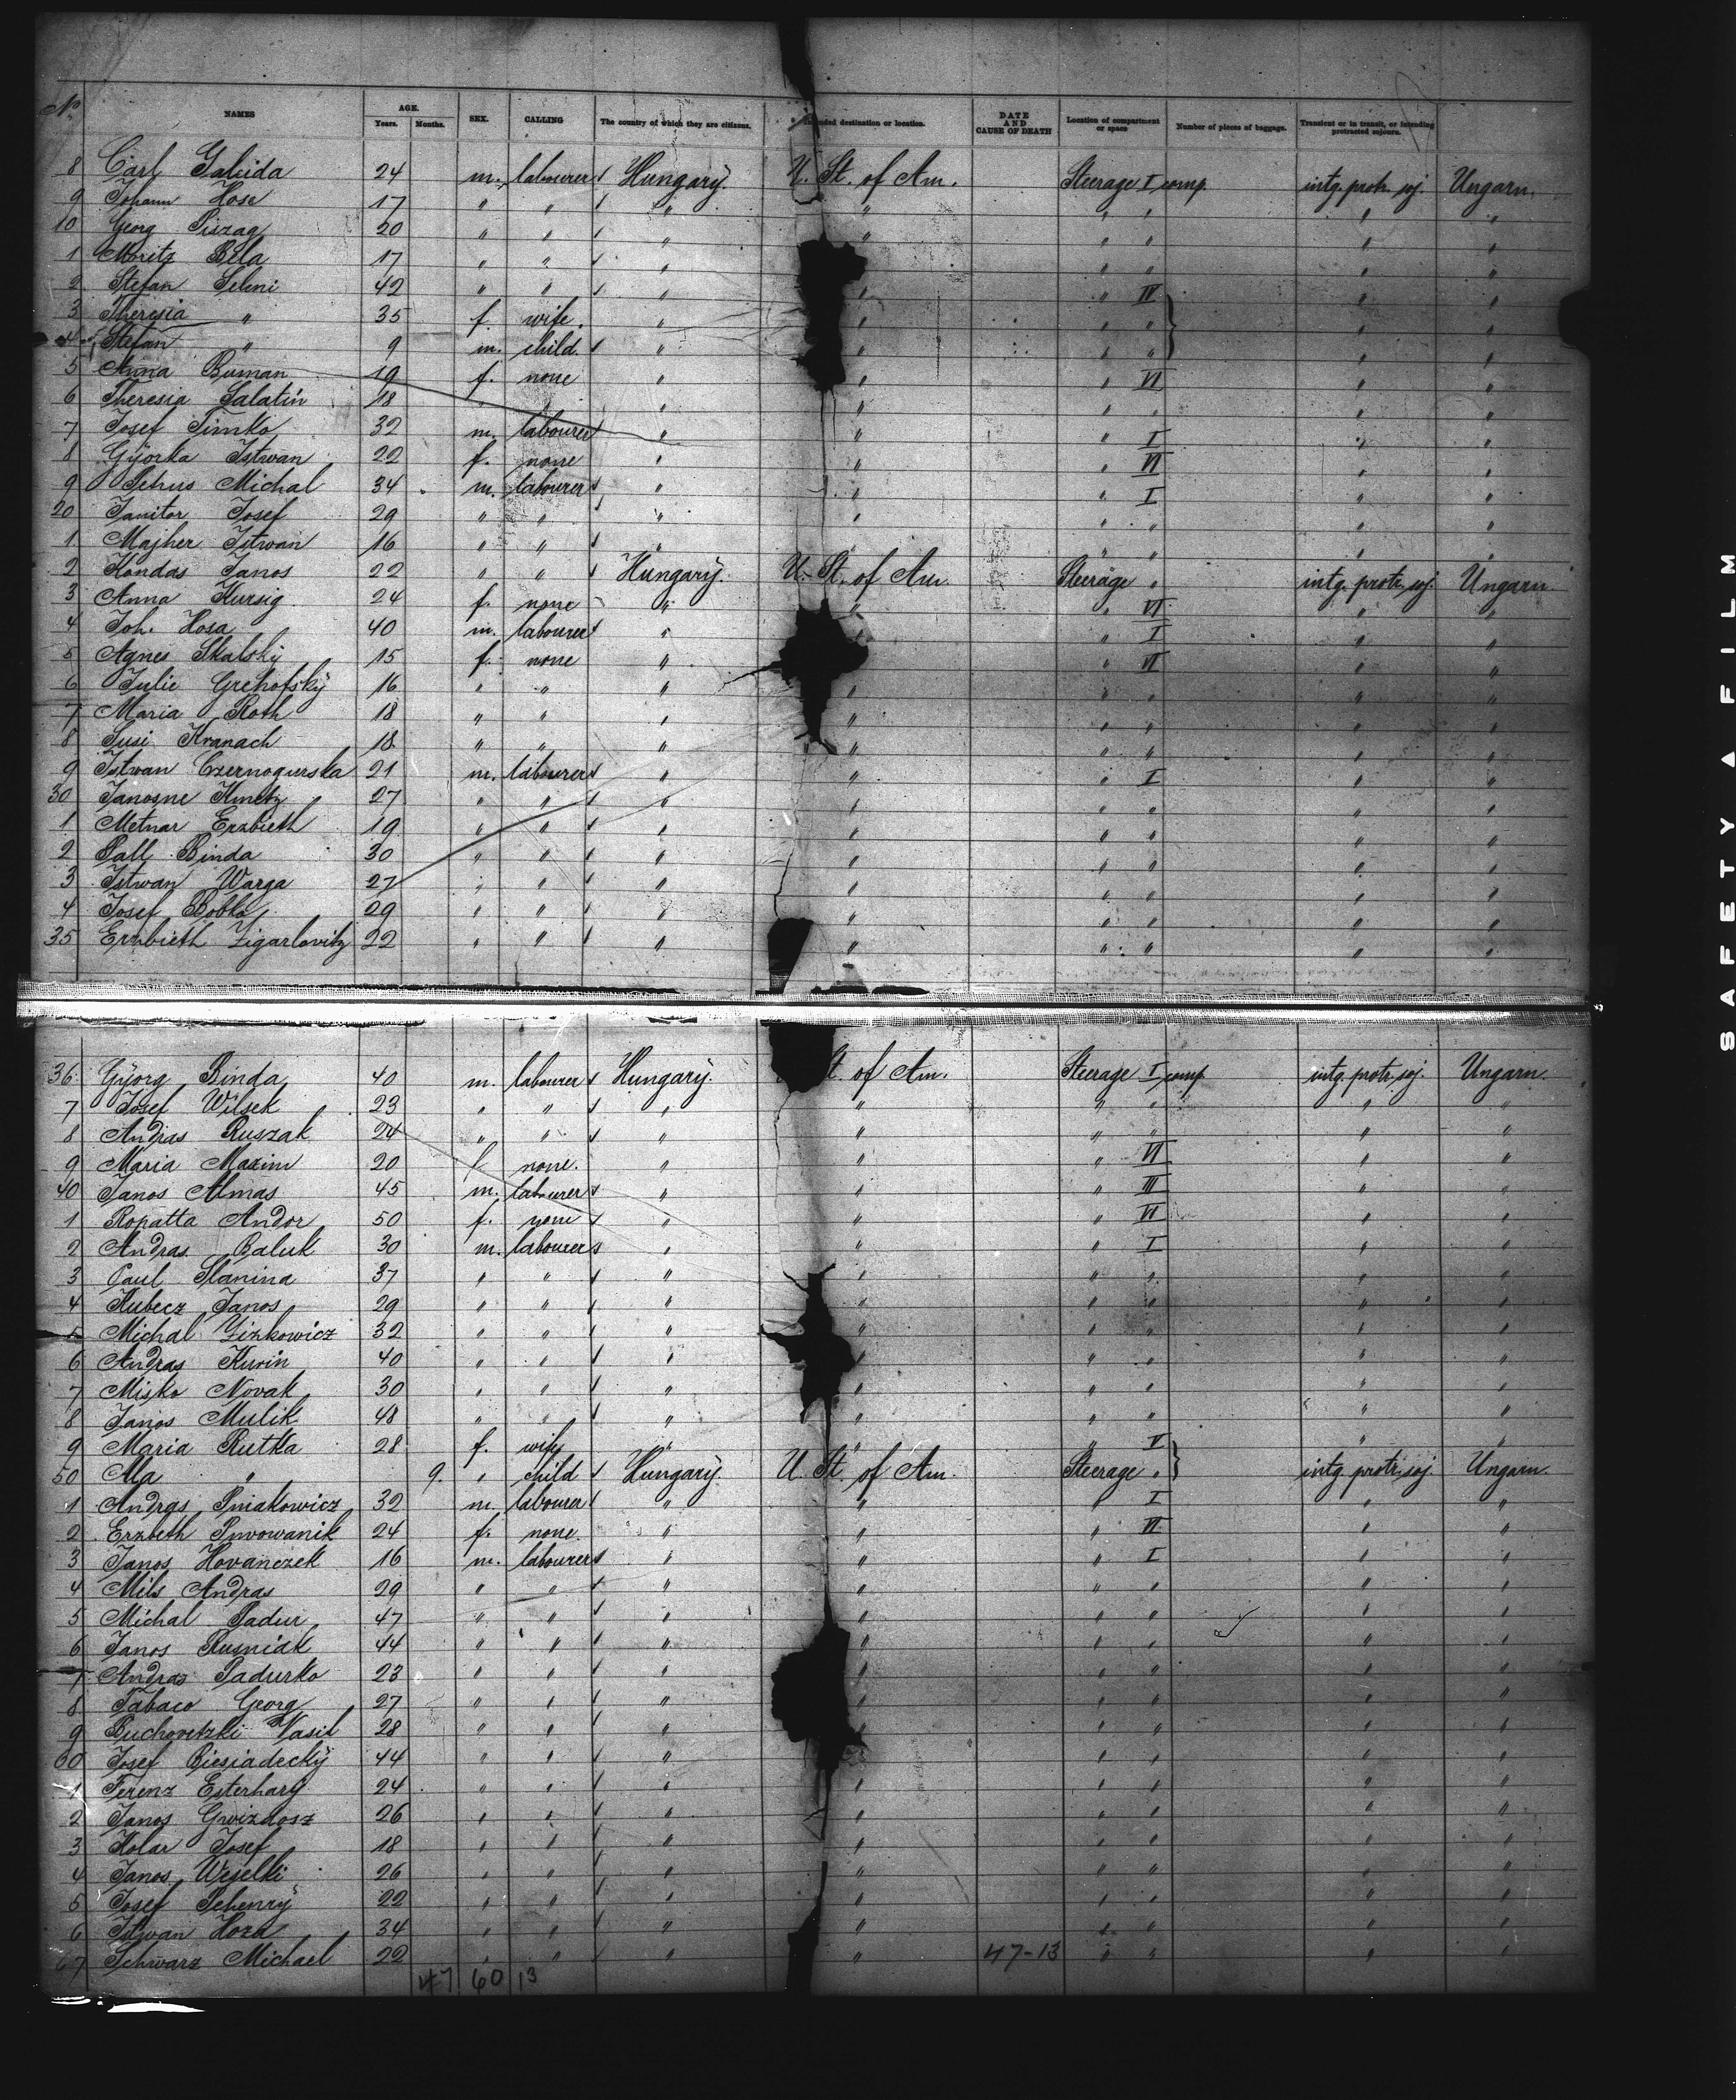 No. NAMES AGE. Years. Months. SEX. CALLING The country of which they are citizens. Intended destination or location. DATE AND CAUSE OF DEATH Location of compartment or space Number of pieces of baggage. Transient or in transit, or intending protracted sojourn.
8 Carl Galcida 24 m. labourer Hungary. U. St. of Am. Steerage I comp. intg. protr. soj. Ungarn.
9 Johann Hose 17 " " " " " " " "
10 Georg Piszag 20 " " " " " " " "
1 Moritz Béla 17 " " " " " " " "
2 Stefan Seleni 42 " " " " " IV " "
3 Theresia " 35 f. wife. " " " " " "
4 Stefan " 9 m. child. " " " " " "
5 Anna Buman 19 f. none " " " VI " "
6 Theresia Salatin 18 " " " " " " " "
7 Josef Timko 32 m. labourer " " " I " "
8 Györka Istwan 22 f. none " " " VI " "
9 Michal 34 m. labourer " " " I " "
20 Janitor Josef 29 " " " " " " " "
1 Majher Istwan 16 " " " " " " " "
2 Kondas Janos 22 " " Hungary. U. St. of Am. Steerage " intg. protr. soj. Ungarn.
3 Anna Kursig 24 f. none " " " VI " "
4 Joh. Hosa 40 m. labourer " " " I " "
5 Agnes Skalsky 15 f. none " " " VI " "
6 Julie Grehofsky 16 " " " " " " " "
7 Maria Roth 18 " " " " " " " "
8 Susi Kranach 18 " " " " " " " "
9 Istwan Czernogurska 21 m. labourer " " " I " "
30 Janosne Kmetz 27 " " " " " " " "
1 Metnar Erzbieth 19 " " " " " " " "
2 Pall Binda 30 " " " " " " " "
3 Istwan Warga 27 " " " " " " " "
4 Josef Bobko 29 " " " " " " " "
35 Erzbieth Zigarlovitz 22 " " " " " " " "
36 Györg Binda 40 m. labourer Hungary. St. of Am. Steerage I comp. intg. protr. soj. Ungarn.
7 Josef Wilsek 23 " " " " " " " "
8 Andras Ruszak 24 " " " " " " " "
9 Maria Maxim 20 f. none. " " " VI " "
40 Janos Almas 45 m. labourer " " " III " "
1 Ropatta Andor 50 f. none " " " VI " "
2 Andras Baluk 30 m. labourer " " " I " "
3 Paul Slanina 37 " " " " " " " "
4 Kubecz Janos 29 " " " " " " " "
5 Michal Zizkowicz 32 " " " " " " " "
6 Andras Kurin 40 " " " " " " " "
7 Misko Novak 30 " " " " " " " "
8 Janos Mulik 48 " " " " " " " "
9 Maria Rutka 28 f. wife " " " V " "
50 Ma " 9. " child Hungary. U. St. of Am. Steerage " intg. protr. soj. Ungarn.
1 Andras Pniakowicz 32 m. labourer " " " I " "
2 Erzbeth 24 f. none. " " " VI " "
3 Janos Hovanczek 16 m. labourer " " " I " "
4 Mils Andras 29 " " " " " " " "
5 Michal Padur 47 " " " " " " " "
6 Janos Rusniak 44 " " " " " " " "
7 Andras Padurko 23 " " " " " " " "
8 Tabaco Georg 27 " " " " " " " "
9 Puchovetzki Vasil 28 " " " " " " " "
60 Josef Biesiadecky 44 " " " " " " " "
1 Ferenz Esterhary 24 " " " " " " " "
2 Janos Gwizdosz 26 " " " " " " " "
3 Kolar Josef 18 " " " " " " " "
4 Janos Weselki 26 " " " " " " " "
5 Josef Pehenry 22 " " " " " " " "
6 Istwan Hoza 34 " " " " " " " "
67 Schwarz Michael 22 " " " " 47-13 " " " "
47 60 13
SAFETY ▲ FILM